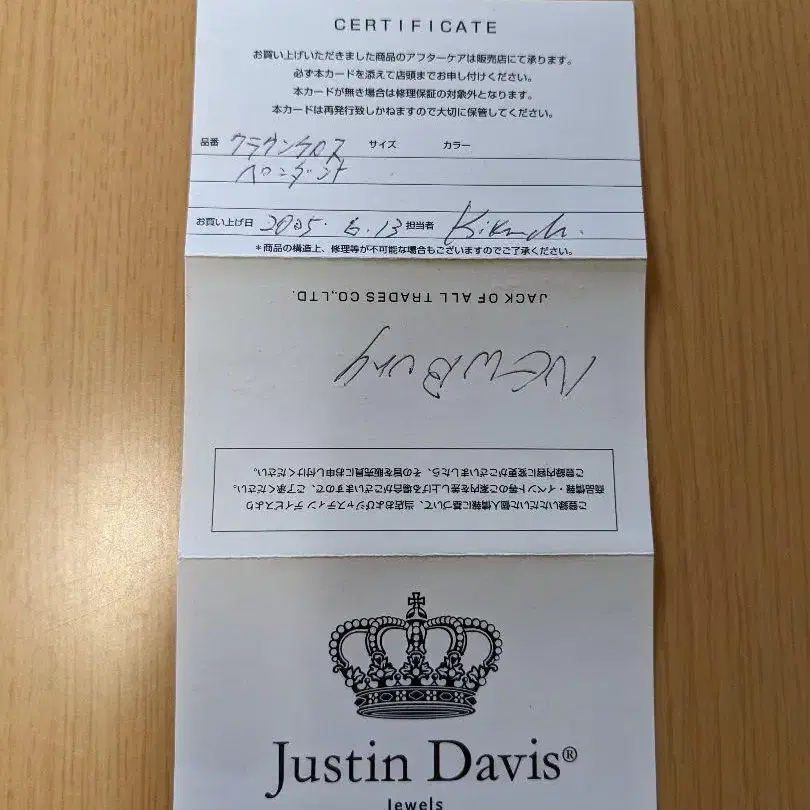 CERTIFICATE
お買い上げいただきました商品のアフターケアは販売店にて承ります。
必ず本カードを添えて店頭までお申し付けください。
本カードが無き場合は修理保証の対象外となります。
本カードは再発行致しかねますので大切に保管してください。
品番 クラウンクロス サイズ カラー
ペンダント
お買い上げ日 2005. 6. 13 担当者 Kikuch.
*商品の構造上、修理等が不可能な場合もございますのでご了承ください。
JACK OF ALL TRADES CO.,LTD.
NEWBury
ご登録いただいた個人情報に基づいて、当店およびジャスティン デイビスより
商品情報・イベント等のご案内を差し上げる場合がございますので、ご了承ください。
ご登録内容に変更がございましたら、その旨を販売員にお申し付けください。
Justin Davis®
Jewels